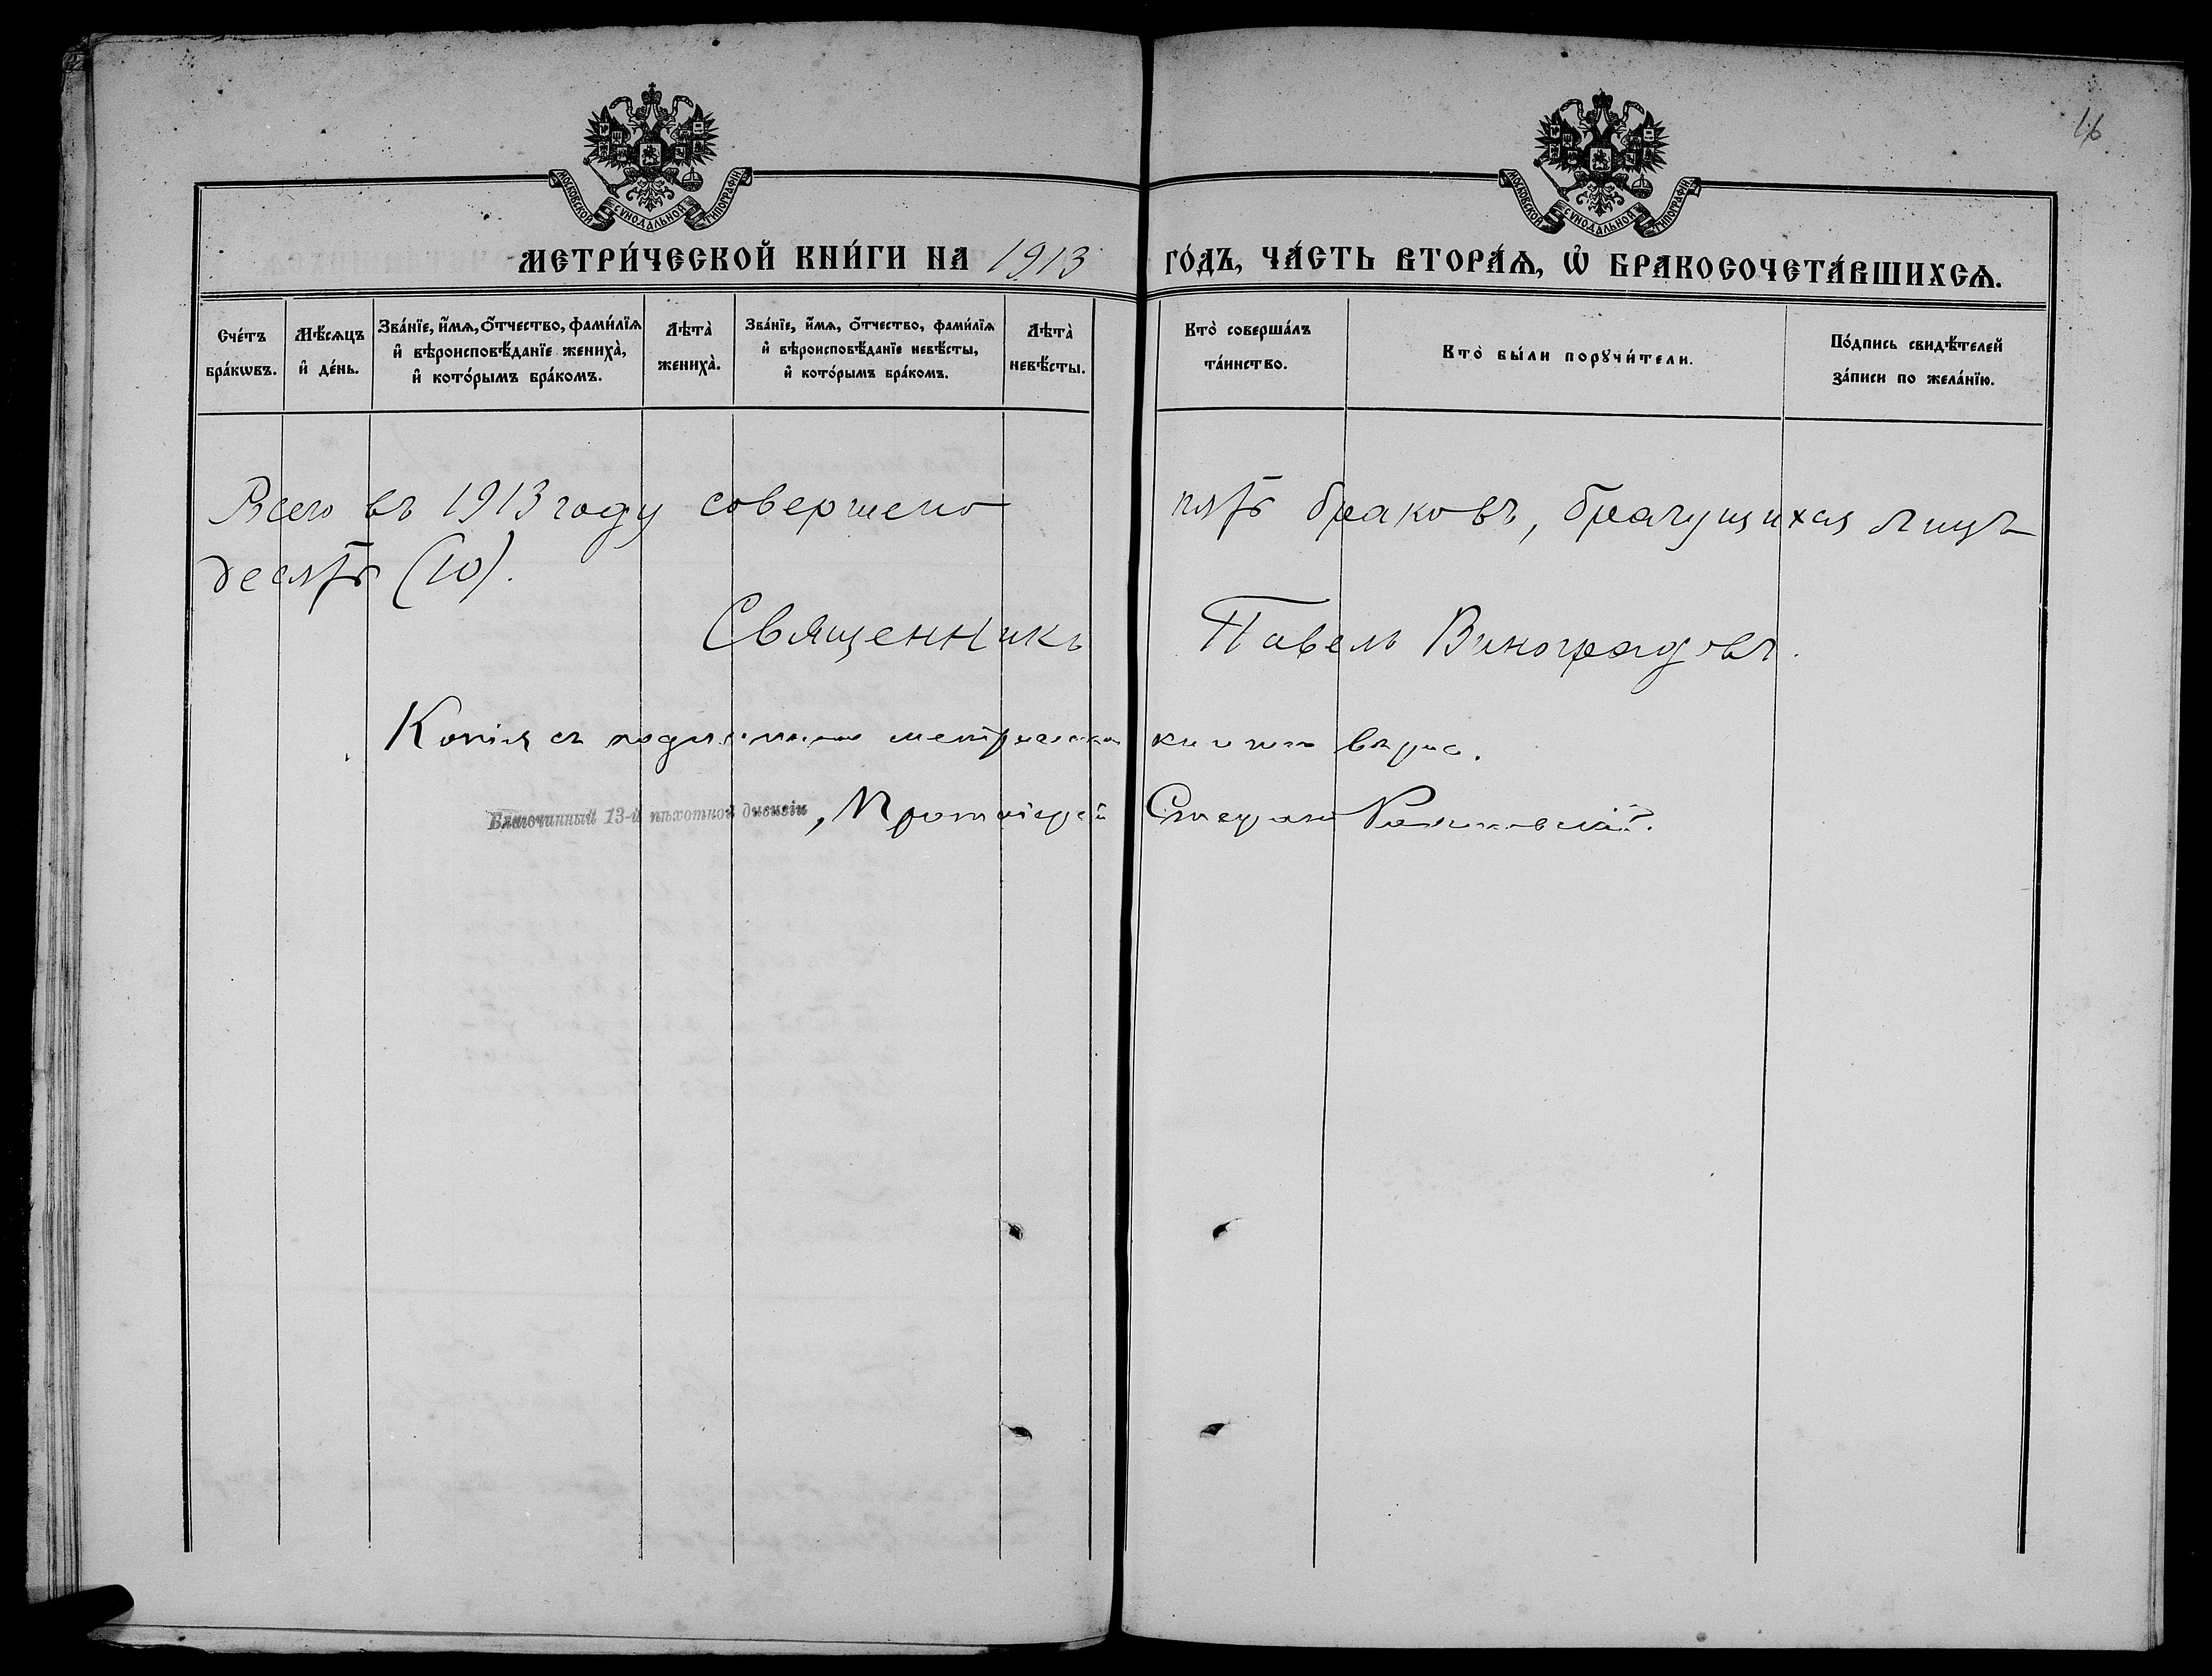 16
МОСКОВСКОЙ СѴНОДАЛЬНОЙ ТИПОГРАФІИ
МОСКОВСКОЙ СѴНОДАЛЬНОЙ ТИПОГРАФІИ
МЕТРИ́ЧЕСКОЙ КНИ́ГИ НА 1913 ГО́ДЪ, ЧА́СТЬ ВТОРА́Ѧ, Ѽ БРАКОСОЧЕТА́ВШИХСѦ.
Сче́тъ бра́кѡвъ.
Мѣ́сѧцъ и҆ де́нь.
Зва́нїе, и҆́мѧ, ѻ҆́тчество, фами́лїѧ и҆ вѣроисповѣ́данїе жениха̀, и҆ кото́рымъ бра́комъ.
Лѣта̀ жениха̀.
Зва́нїе, и҆́мѧ, ѻ҆́тчество, фами́лїѧ и҆ вѣроисповѣ́данїе невѣ́сты, и҆ кото́рымъ бра́комъ.
Лѣта̀ невѣ́сты.
Кто̀ соверша́лъ та́инство.
Кто̀ бы́ли порꙋчи́тели.
По́дпись свидѣ́телей за́писи по жела́нїю.
Всего въ 1913 году совершено пять браковъ, брачущихся лицъ
десять (10).
Священникъ Павелъ Виноградовъ.
Копія съ подлинною метрическою книгою вѣрна.
Благочинный 13-й пѣхотной дивизіи, Протоіерей Стефанъ